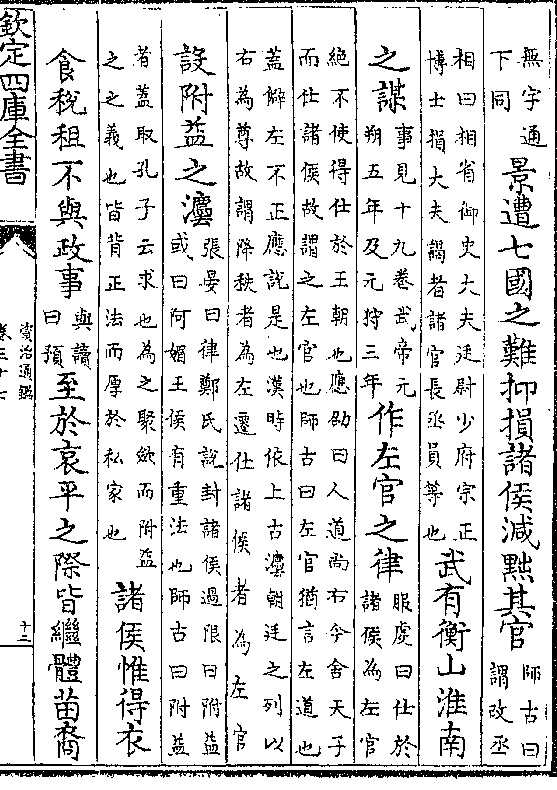 無字通
下同
景遭七國之難抑損諸侯減黜其官
師古曰
謂改丞
相曰相省御史大夫廷尉少府宗正
博士損大夫謁者諸官長丞員等也
武有衡山淮南
之謀
事見十九卷武帝元
朔五年及元狩三年
作左官之律
服虔曰仕於
諸侯為左官
絶不使得仕於王朝也應劭曰人道尚右今舍天子
而仕諸侯故謂之左官也師古曰左官猶言左道也
蓋僻左不正應說是也漢時依上古灋朝廷之列以
右為尊故謂降秩者為左遷仕諸侯者為左官
設附益之灋
張晏曰律鄭氏說封諸侯過限曰附益
或曰阿媚王侯有重法也師古曰附益
者蓋取孔子云求也為之聚斂而附益
之之義也皆背正法而厚於私家也
諸侯惟得衣
食稅租不與政事
與讀
曰預
至於哀平之際皆繼體苗裔
欽定四庫全書
資治通鑑
卷三十七
十二